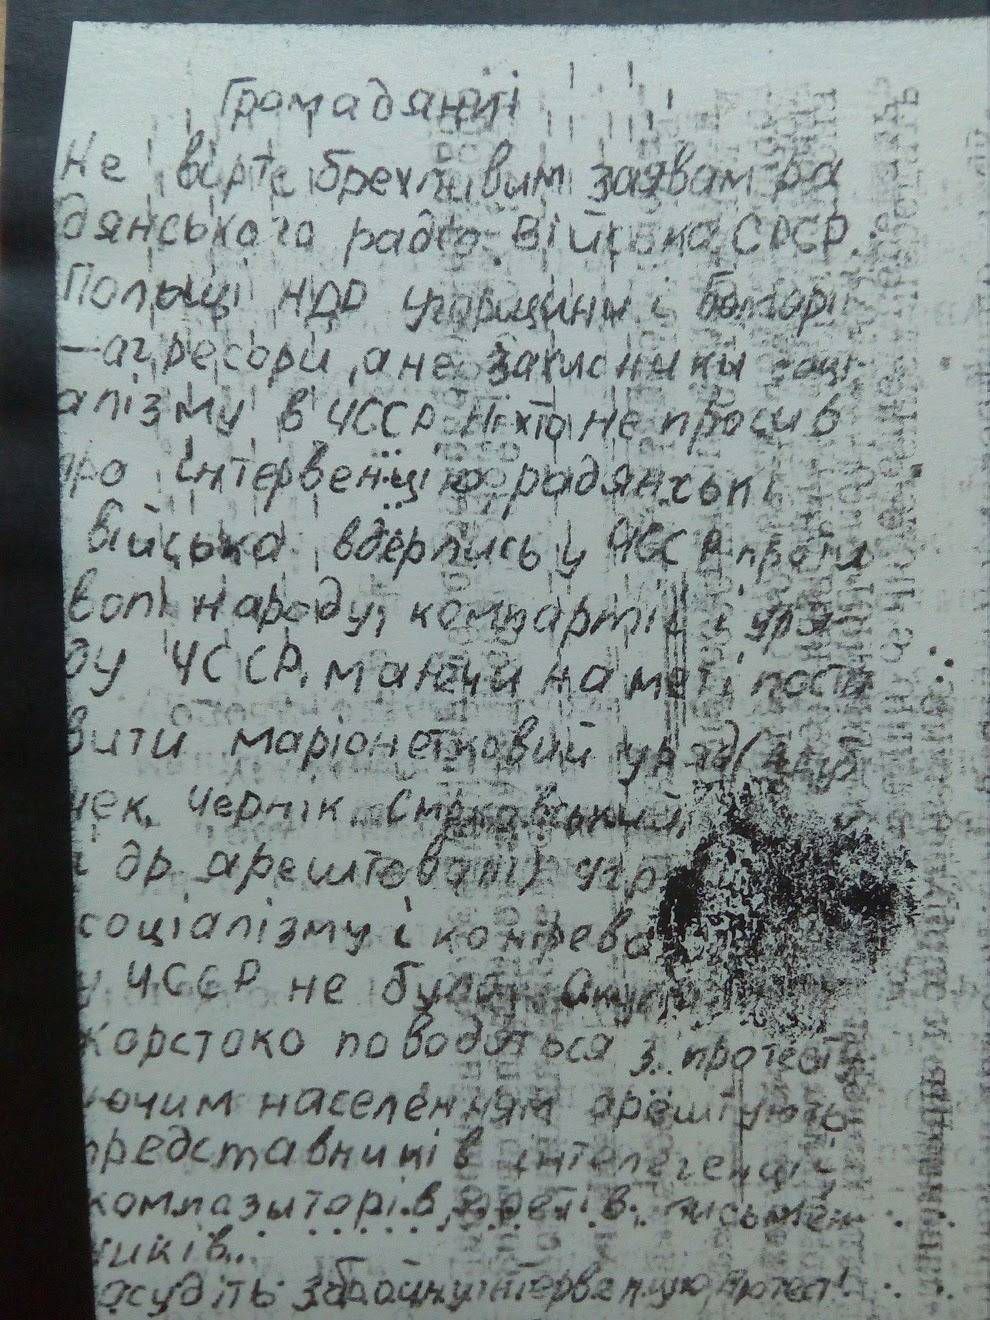 Громадяни!
Не вірте брехливим заявам ра
дянського радіо. Війська СРСР
Польщі НДР Угорщини і Болгарі
—агресори, а не захисники соці
алізму в ЧССР. Ніхто не просив
про інтервенцію, радянські
війська вдерлись у ЧССР проти
волі народу, компартії і уря-
ду ЧССР, маючи на меті поста
вити маріонетковий уряд (Дуб
чек, Чернік, Смрковський,
і др арештовані)
соціалізму і
у ЧССР не було.
жорстоко поводяться з протест
уючим населенням арештують
представників інтелегенції,
композиторів, поетів, письмен
ників..
асудіть збройну інтервенцію, протест!